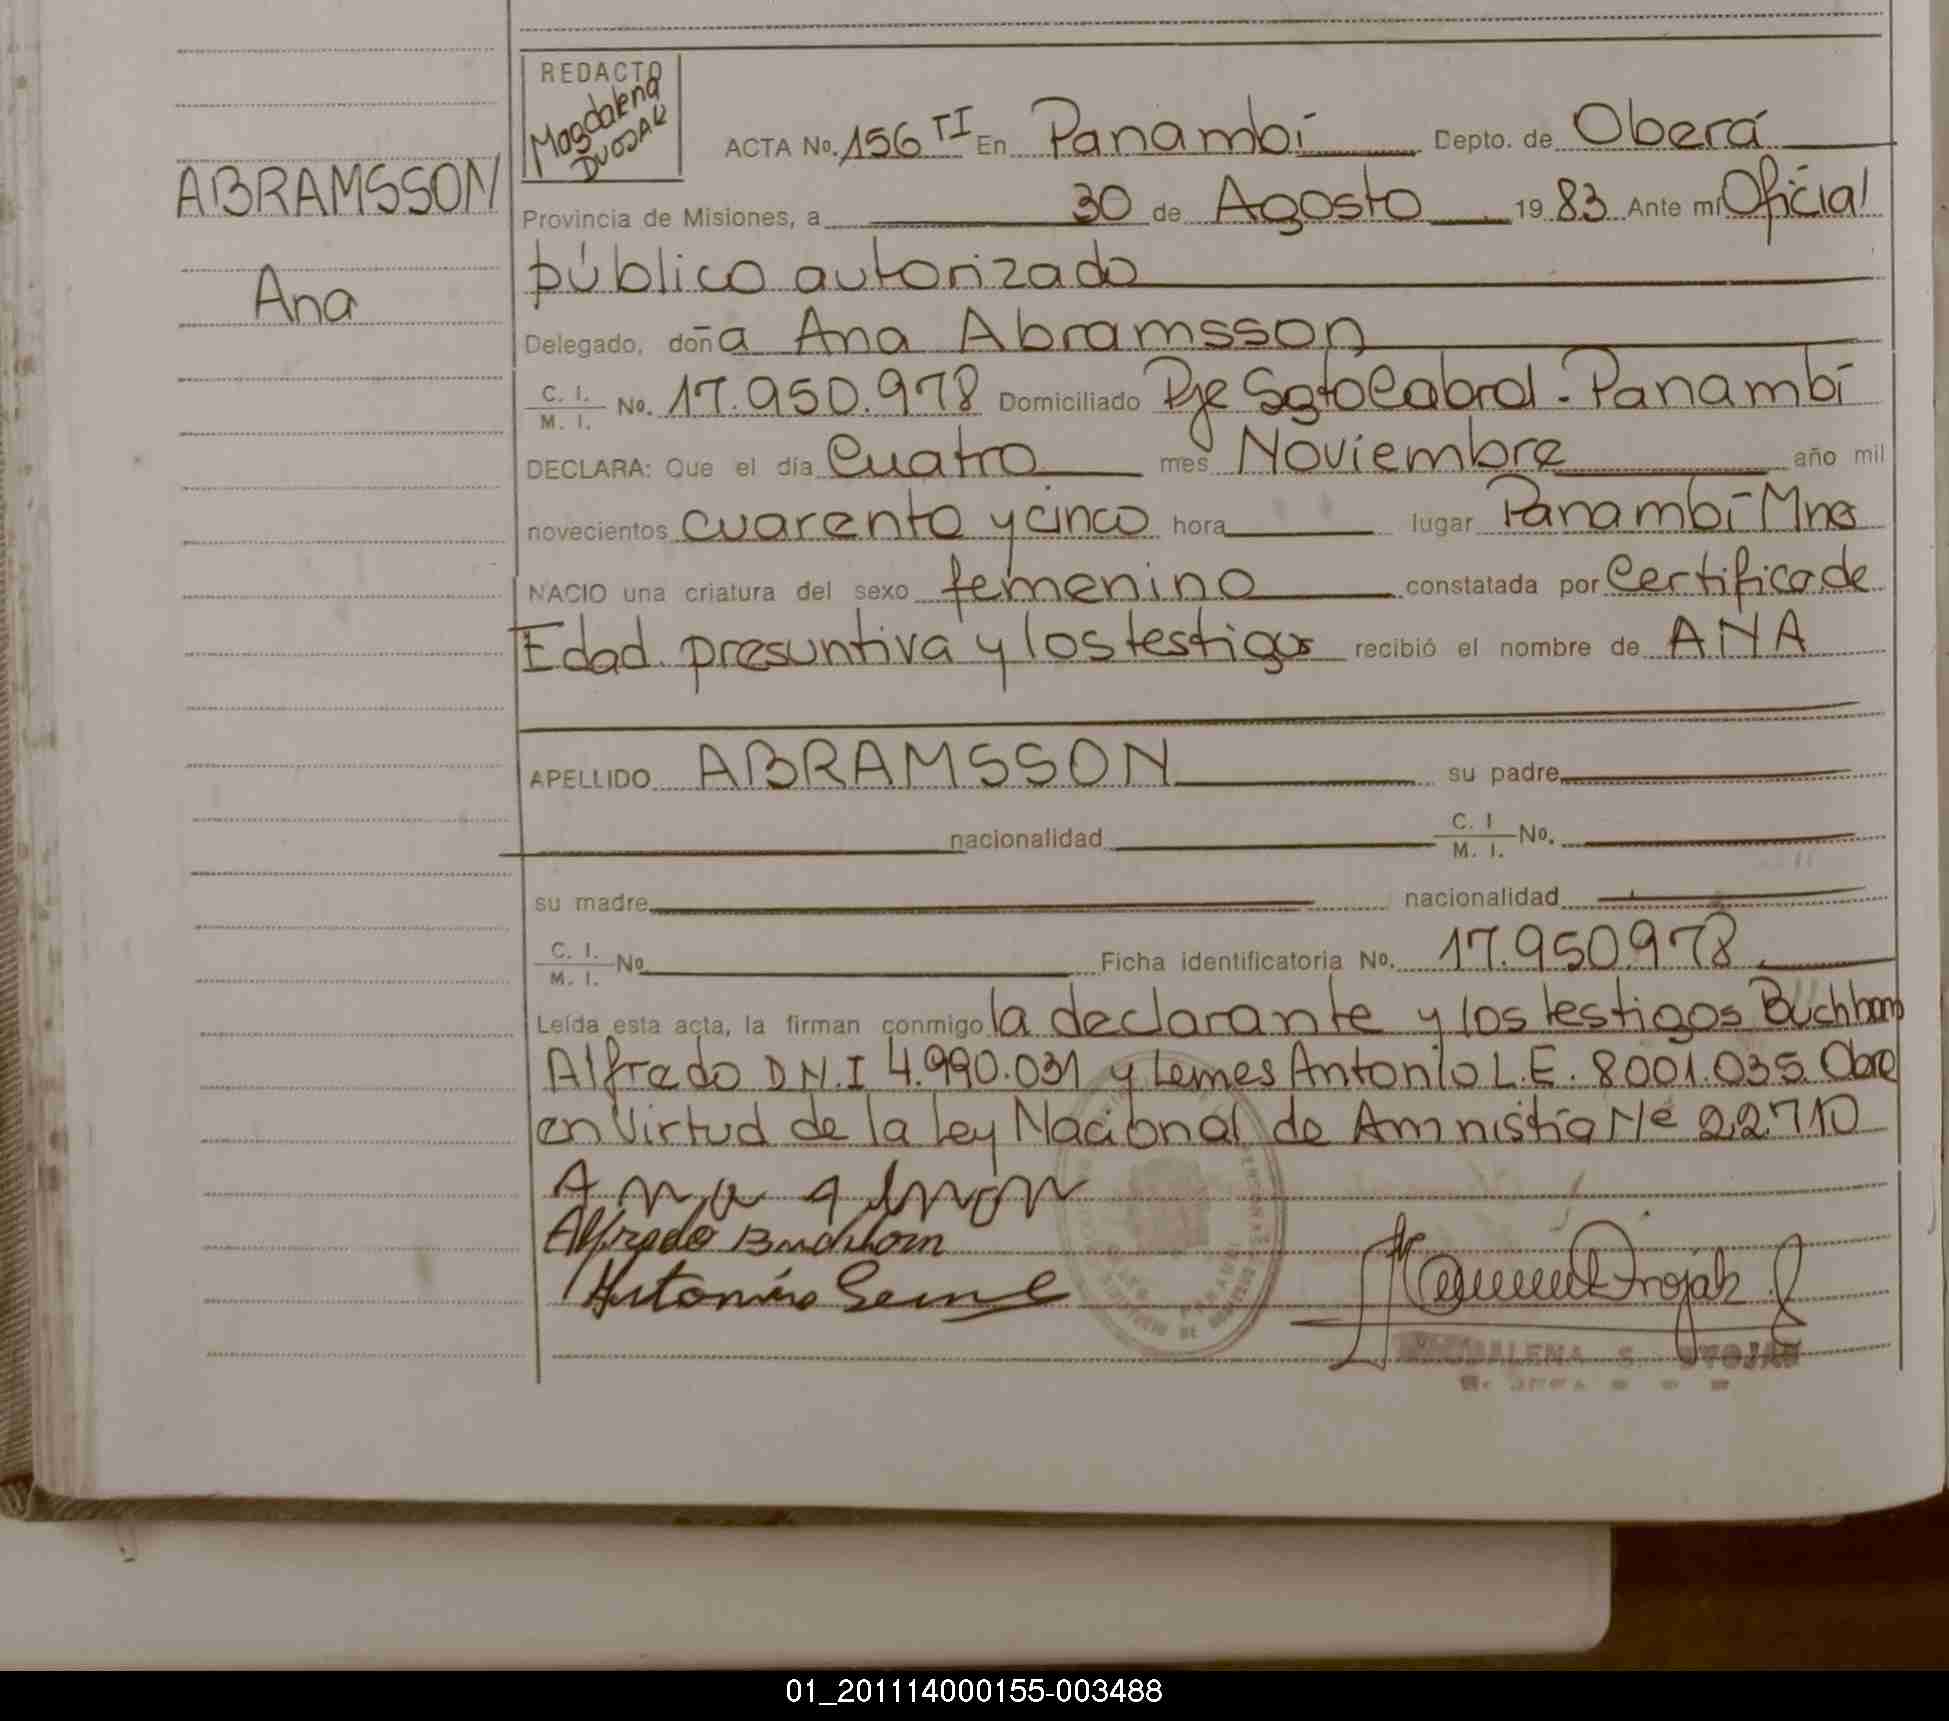 REDACTO
Magdalena
DVOJAK
ACTA No. 156 TI En Panambí Depto. de Oberá
ABRAMSSON
Provincia de Misiones, a 30 de Agosto 1983 Ante mí Oficial
público autorizado
Ana
Delegado, doña Ana Abramsson
C. I.
M. I. No. 17.950.978 Domiciliado Pje Sgto Cabral - Panambí
DECLARA: Que el día Cuatro mes Noviembre año mil
novecientos cuarenta y cinco hora lugar Panambí - Mnes
NACIO una criatura del sexo femenino constatada por Certificado de
Edad presuntiva y los testigos recibió el nombre de ANA
APELLIDO ABRAMSSON su padre
nacionalidad C. I
M. I. No.
su madre nacionalidad
C. I.
M. I. No Ficha identificatoria No. 17.950.978
Leída esta acta, la firman conmigo la declarante y los testigos Buchhorn
Alfredo D.N.I 4.990.031 y Lemes Antonio L.E. 8001.035. Obre
en Virtud de la Ley Nacional de Amnistía Nº 22710
Ana
Alfredo Buchhorn
Antonio
MAGDALENA S.
01_201114000155-003488